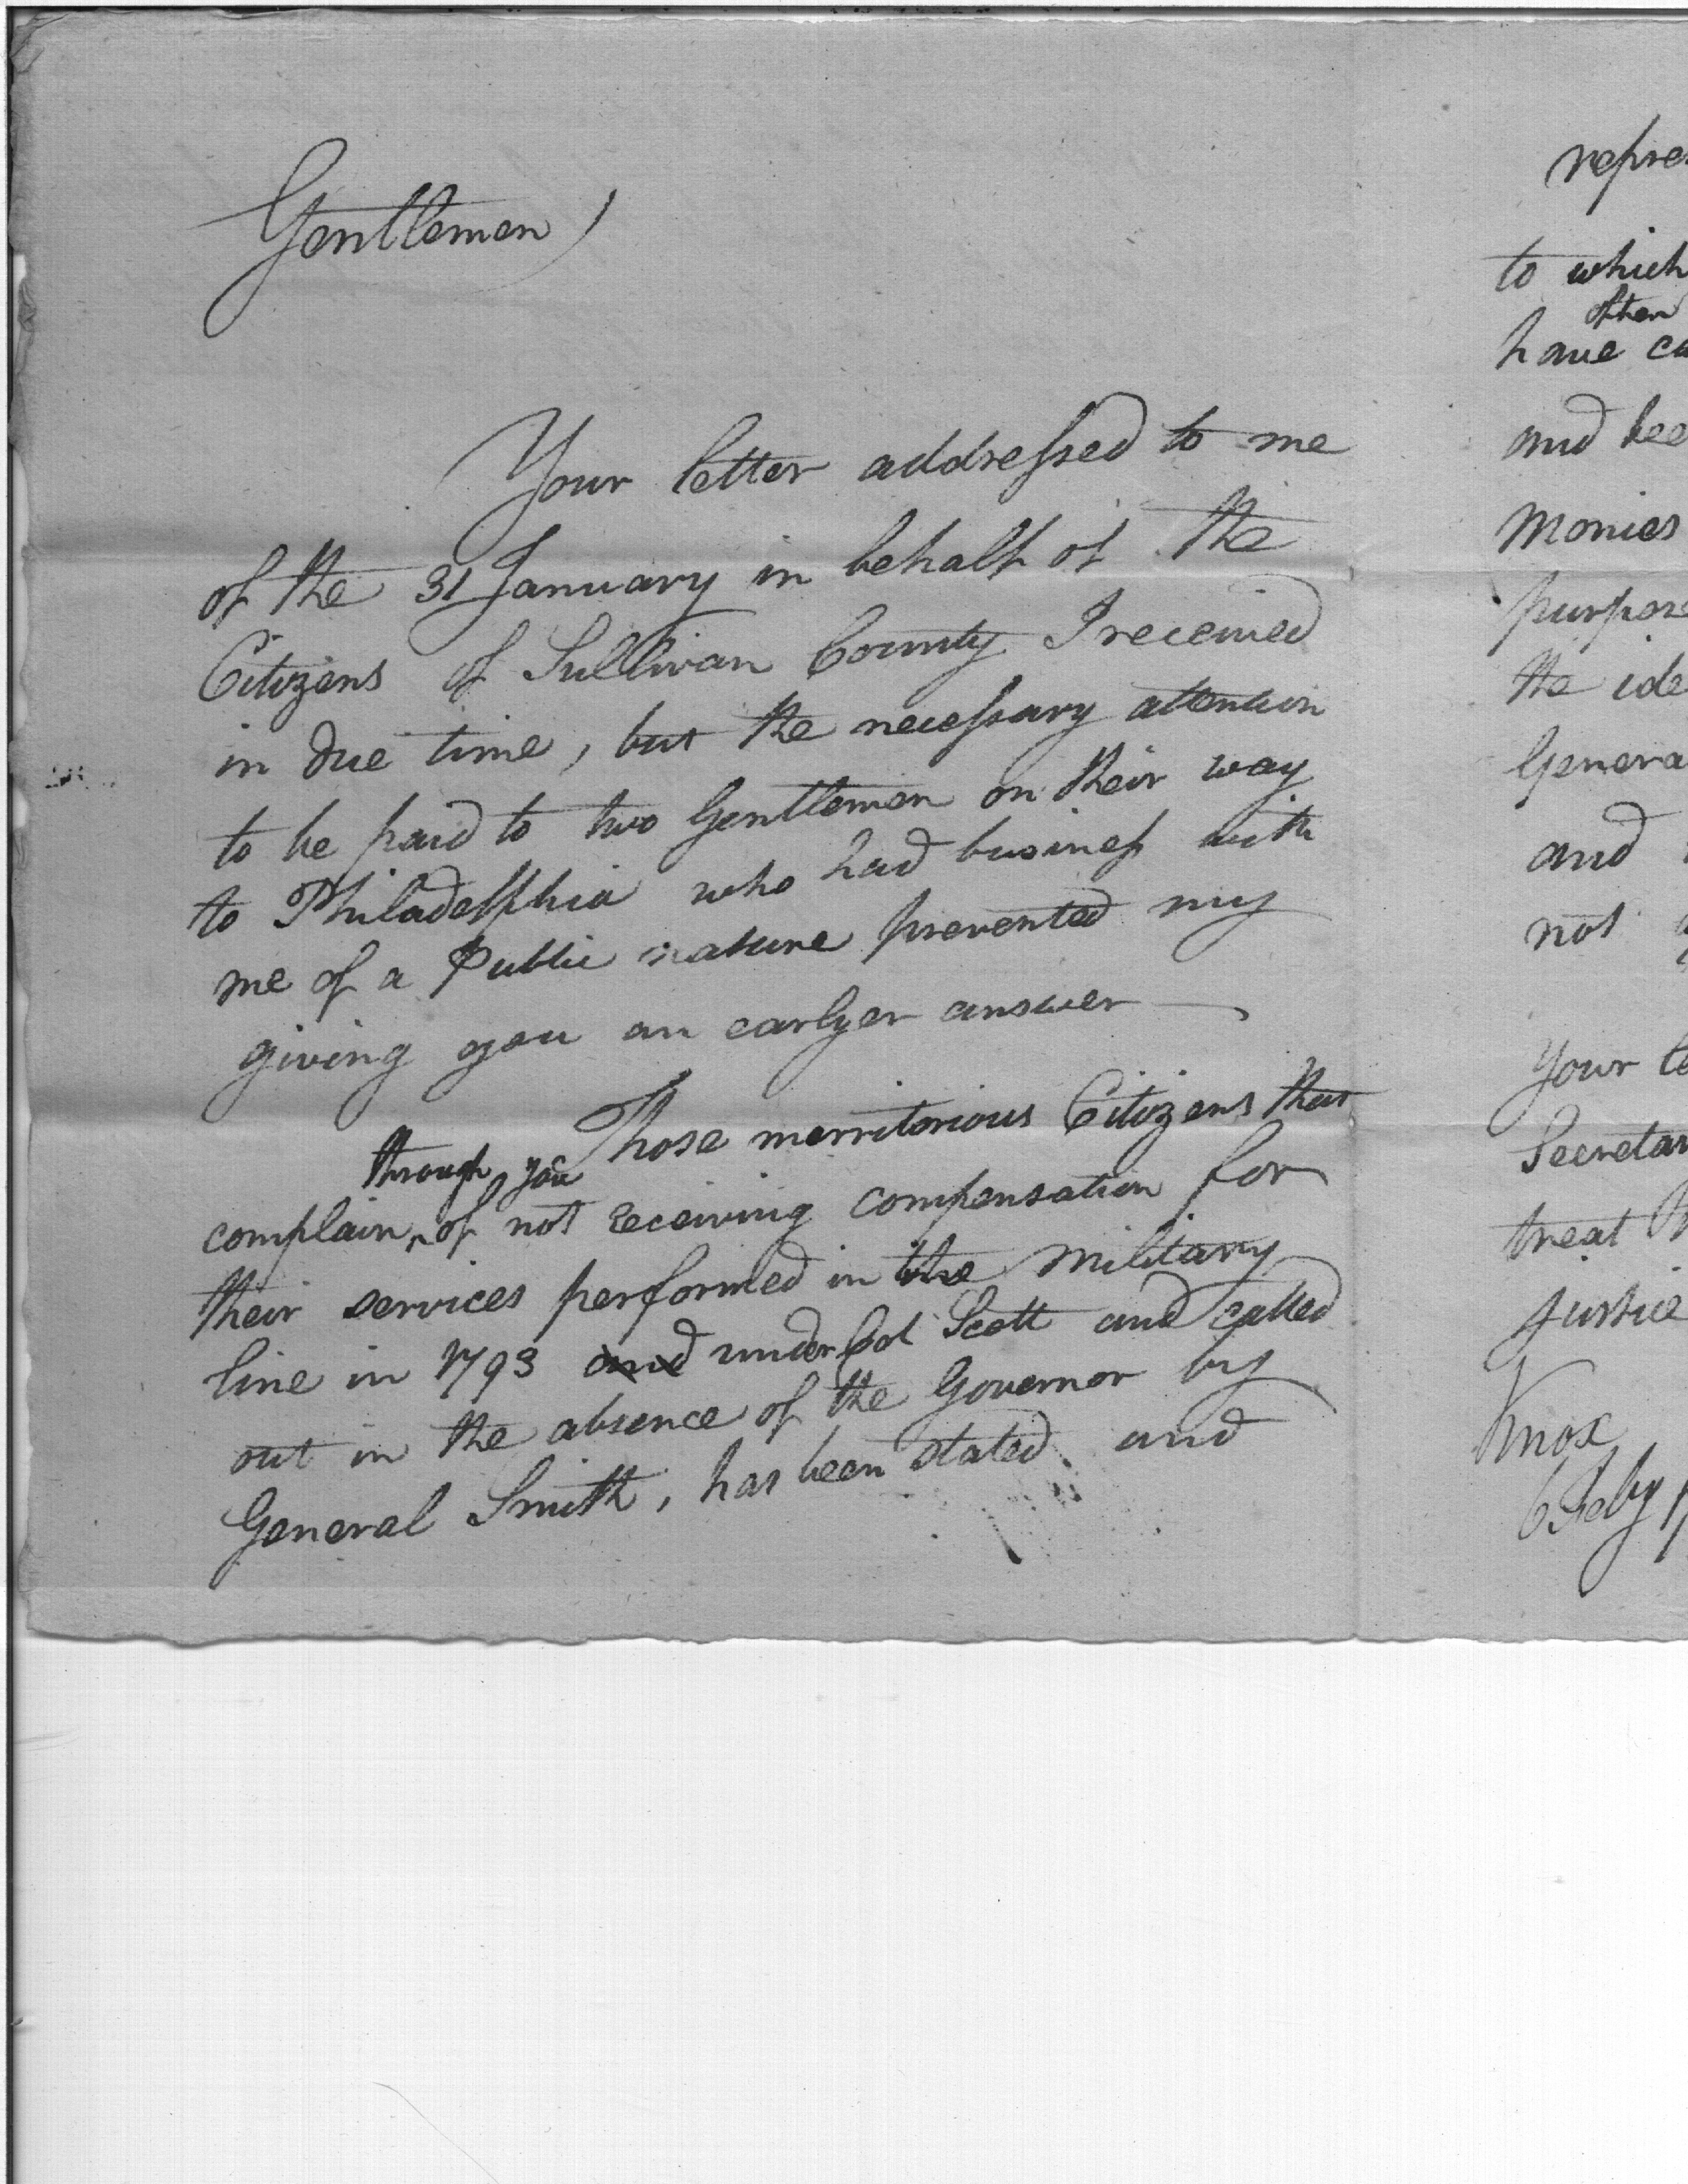 Gentlemen
Your letter addressed to me
of the 31 January in behalf of the
Citizens of Sullivan County I received
in due time, but the necessary attention
to be paid to two Gentlemen on their way
to Philadelphia who had business with
me of a Public nature prevented my
giving you an earlyer answer —
Those merritorious Citizens that
through you
complain ‸ of not receiving compensation for
their services performed in the military
line in 1793 and under Col Scott and called
out in the absence of the Governor by
General Smith, has been stated and
repre
to which
often
have ca
and bee
monies
purpose
the ide
Genera
and
not
Your le
Secretar
treat
justice
Knox
6 Feby 1